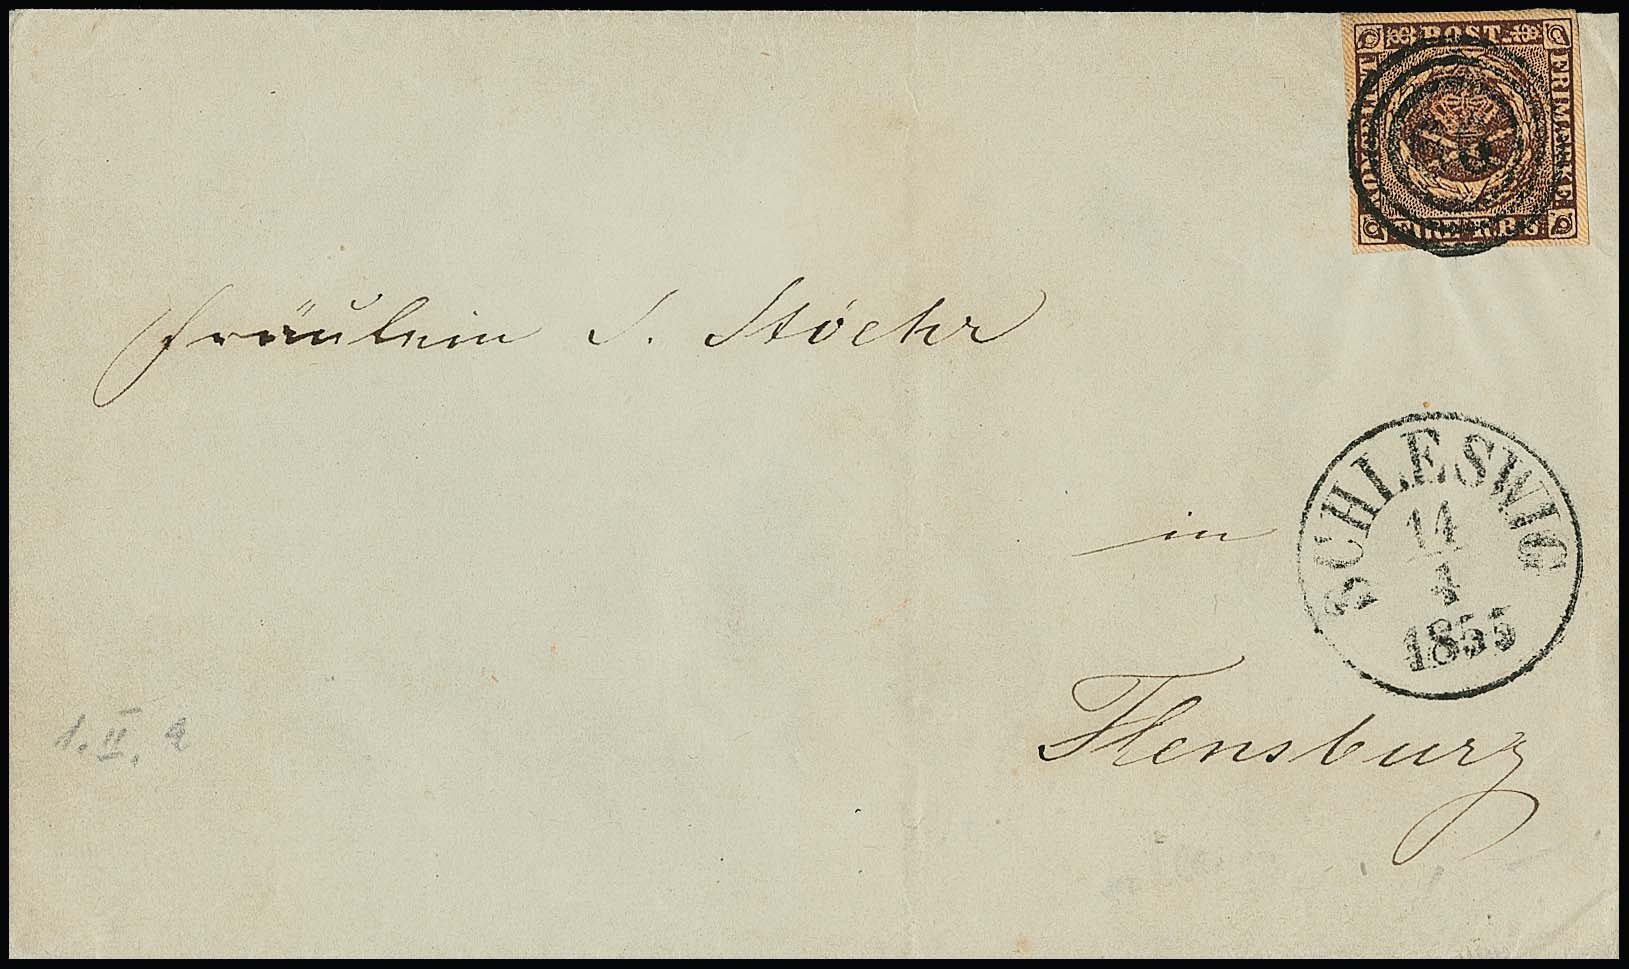 KONGELIGT
POST
FRIMÆRKE
FIRE R.B.S
Fräulein S. Stöehr
in
SCHLESWIG
14
4
1855
Flensburg
1. II. a